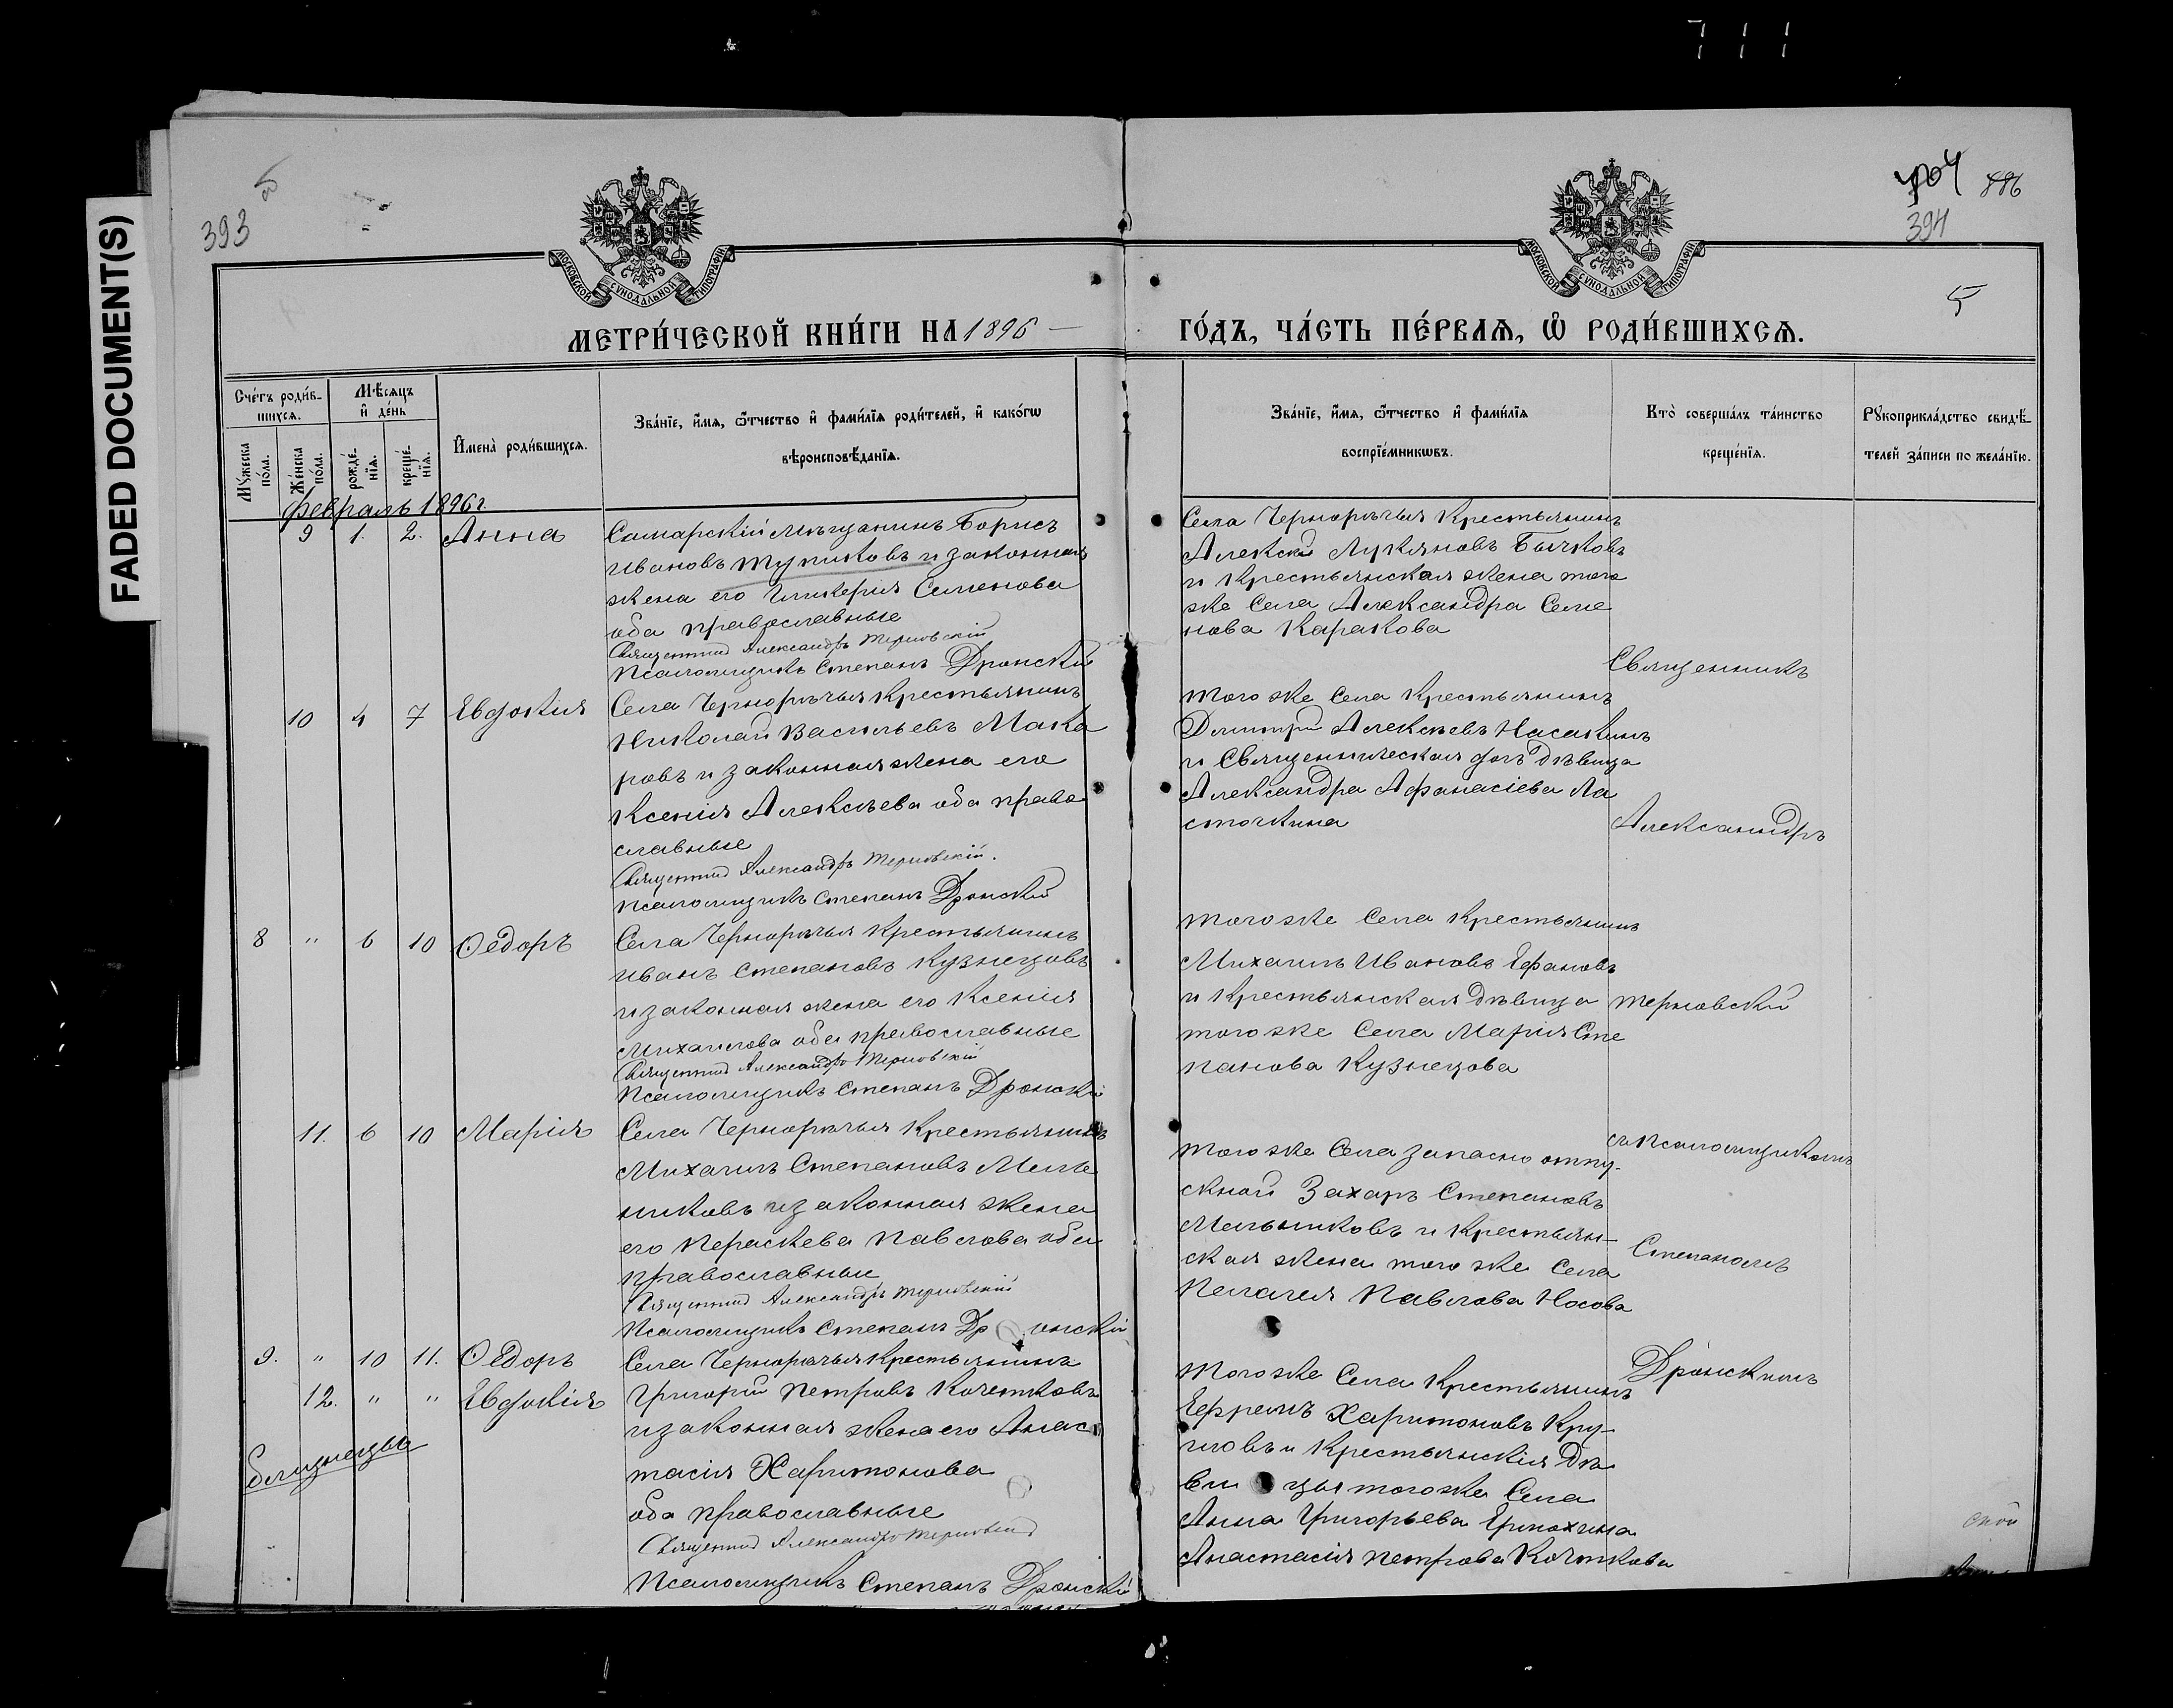 FADED DOCUMENT(S)
393
394
886
5
МОСКОВСКОЙ СѴНОДАЛЬНОЙ ТИПОГРАФІИ
МОСКОВСКОЙ СѴНОДАЛЬНОЙ ТИПОГРАФІИ
МЕТРИ́ЧЕСКОЙ КНИ́ГИ НА 1896
ГО́ДЪ, ЧА́СТЬ ПЕ́РВАѦ, Ѡ҆ РОДИ́ВШИХСѦ.
Сче́тъ роди́в-
шихсѧ.
Мꙋ́жеска по́ла.
Же́нска по́ла.
Мѣ́сѧцъ и҆ де́нь
рожде́-нїѧ.
креще́-нїѧ.
И҆мена̀ роди́вшихсѧ.
Зва́нїе, и҆́мѧ, ѻ҆́тчество и҆ фами́лїѧ роди́телей, и҆ како́гѡ
вѣроисповѣ́данїѧ.
Зва́нїе, и҆́мѧ, ѻ҆́тчество и҆ фами́лїѧ
воспрїе́мникѡвъ.
Кто̀ соверша́лъ та́инство
креще́нїѧ.
Рꙋкоприкла́дство свидѣ́-
телей за́писи по жела́нїю.
Февраль 1896 г
9 1. 2. Анна
Самарскій мѣщанинъ Борисъ
Ивановъ Тупиковъ и законная
жена его Гликерия Семенова
оба православные
Священник Александръ Терновскій
Псаломщикъ Степанъ Дронскій
Села Чернорѣчья Крестьянинъ
Алексей Лукяновъ Бычковъ
и крестьянская жена того
же Села Александра Семе
нова Каракова
10 4 7 Евдокия
Села Чернорѣчья Крестьянинъ
Николай Васильевъ Мака
ровъ и законная жена его
Ксения Алексѣева оба право
славные
Священник Александръ Терновскій.
Псаломщикъ Степанъ Дронский
Того же Села Крестьянинъ
Димитрий Алексѣевъ Насакинъ
и Священническая дочь дѣвица
Александра Афанасіева Ла
сточкина
8 " 6 10 Ѳедоръ
Села Чернорѣчья Крестьянинъ
Иванъ Степановъ Кузнецовъ
и законная жена его Ксения
Михаилова оба православные
Священник Александръ Терновскій
Псаломщикъ Степанъ Дронскій
Того же Села Крестьянинъ
Михаилъ Ивановъ Ефановъ
и крестьянская Дѣвица
того же Села Мария Сте
панова Кузнецова
11. 6 10 Марія
Села Чернорѣчья Крестьянинъ
Михаилъ Степановъ Мель
никовъ и законная жена
его Параскева Павлова оба
православные
Священник Александръ Терновскій
Псаломщикъ Степанъ Дронскій
Того же Села запасно отпу-
скной Захаръ Степановъ
Мельниковъ и Крестьян-
ская жена того же Села
Пелагея Павлова Носова
9. " 10 11. Ѳедоръ
12. " " Евдокія
близнецы
Села Чернорѣчья Крестьянинъ
Григорий Петровъ Кочетковъ
и законная жена его Анас
тасия Харитонова
оба православные
Священник Александръ Терновский
Псаломщикъ Степанъ Дронскій
Того же Села Крестьянинъ
Ефремъ Харитоновъ Кру-
гловъ и Крестьянския Дѣ
вицы того же Села
Анна Григорьева Ермохина
Анастасия Петрова Кочткова
Священникъ
Александръ
Терновский
съ Псаломщикомъ
Степаномъ
Дронскимъ